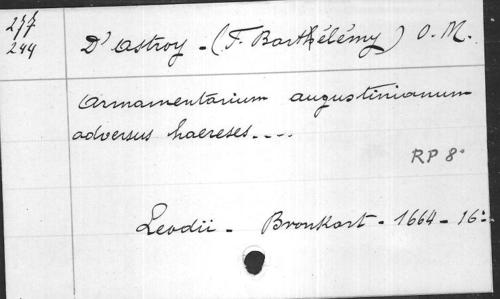 277
244
D'Astroy - (F. Barthélémy) O. M.
Armamentarium augustinianum
adversus haereses....
RP 8°
Leodii - Bronkart - 1664 - 16°